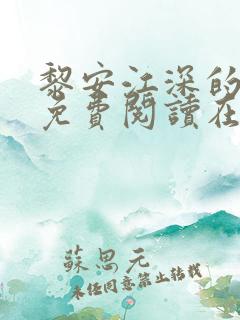 黎安江深的
免費閱讀在
蘇思元
未經同意禁止轉載